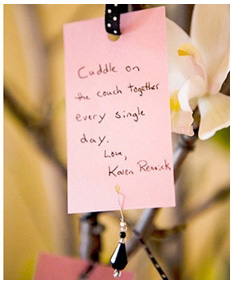 Cuddle on
the couch together
every single
day.
Love,
Karen Renwick